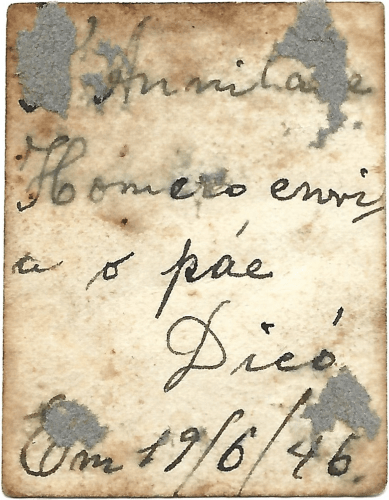 Annita e
Homero envi
a o páe
Dicó
Em 19/6/46.